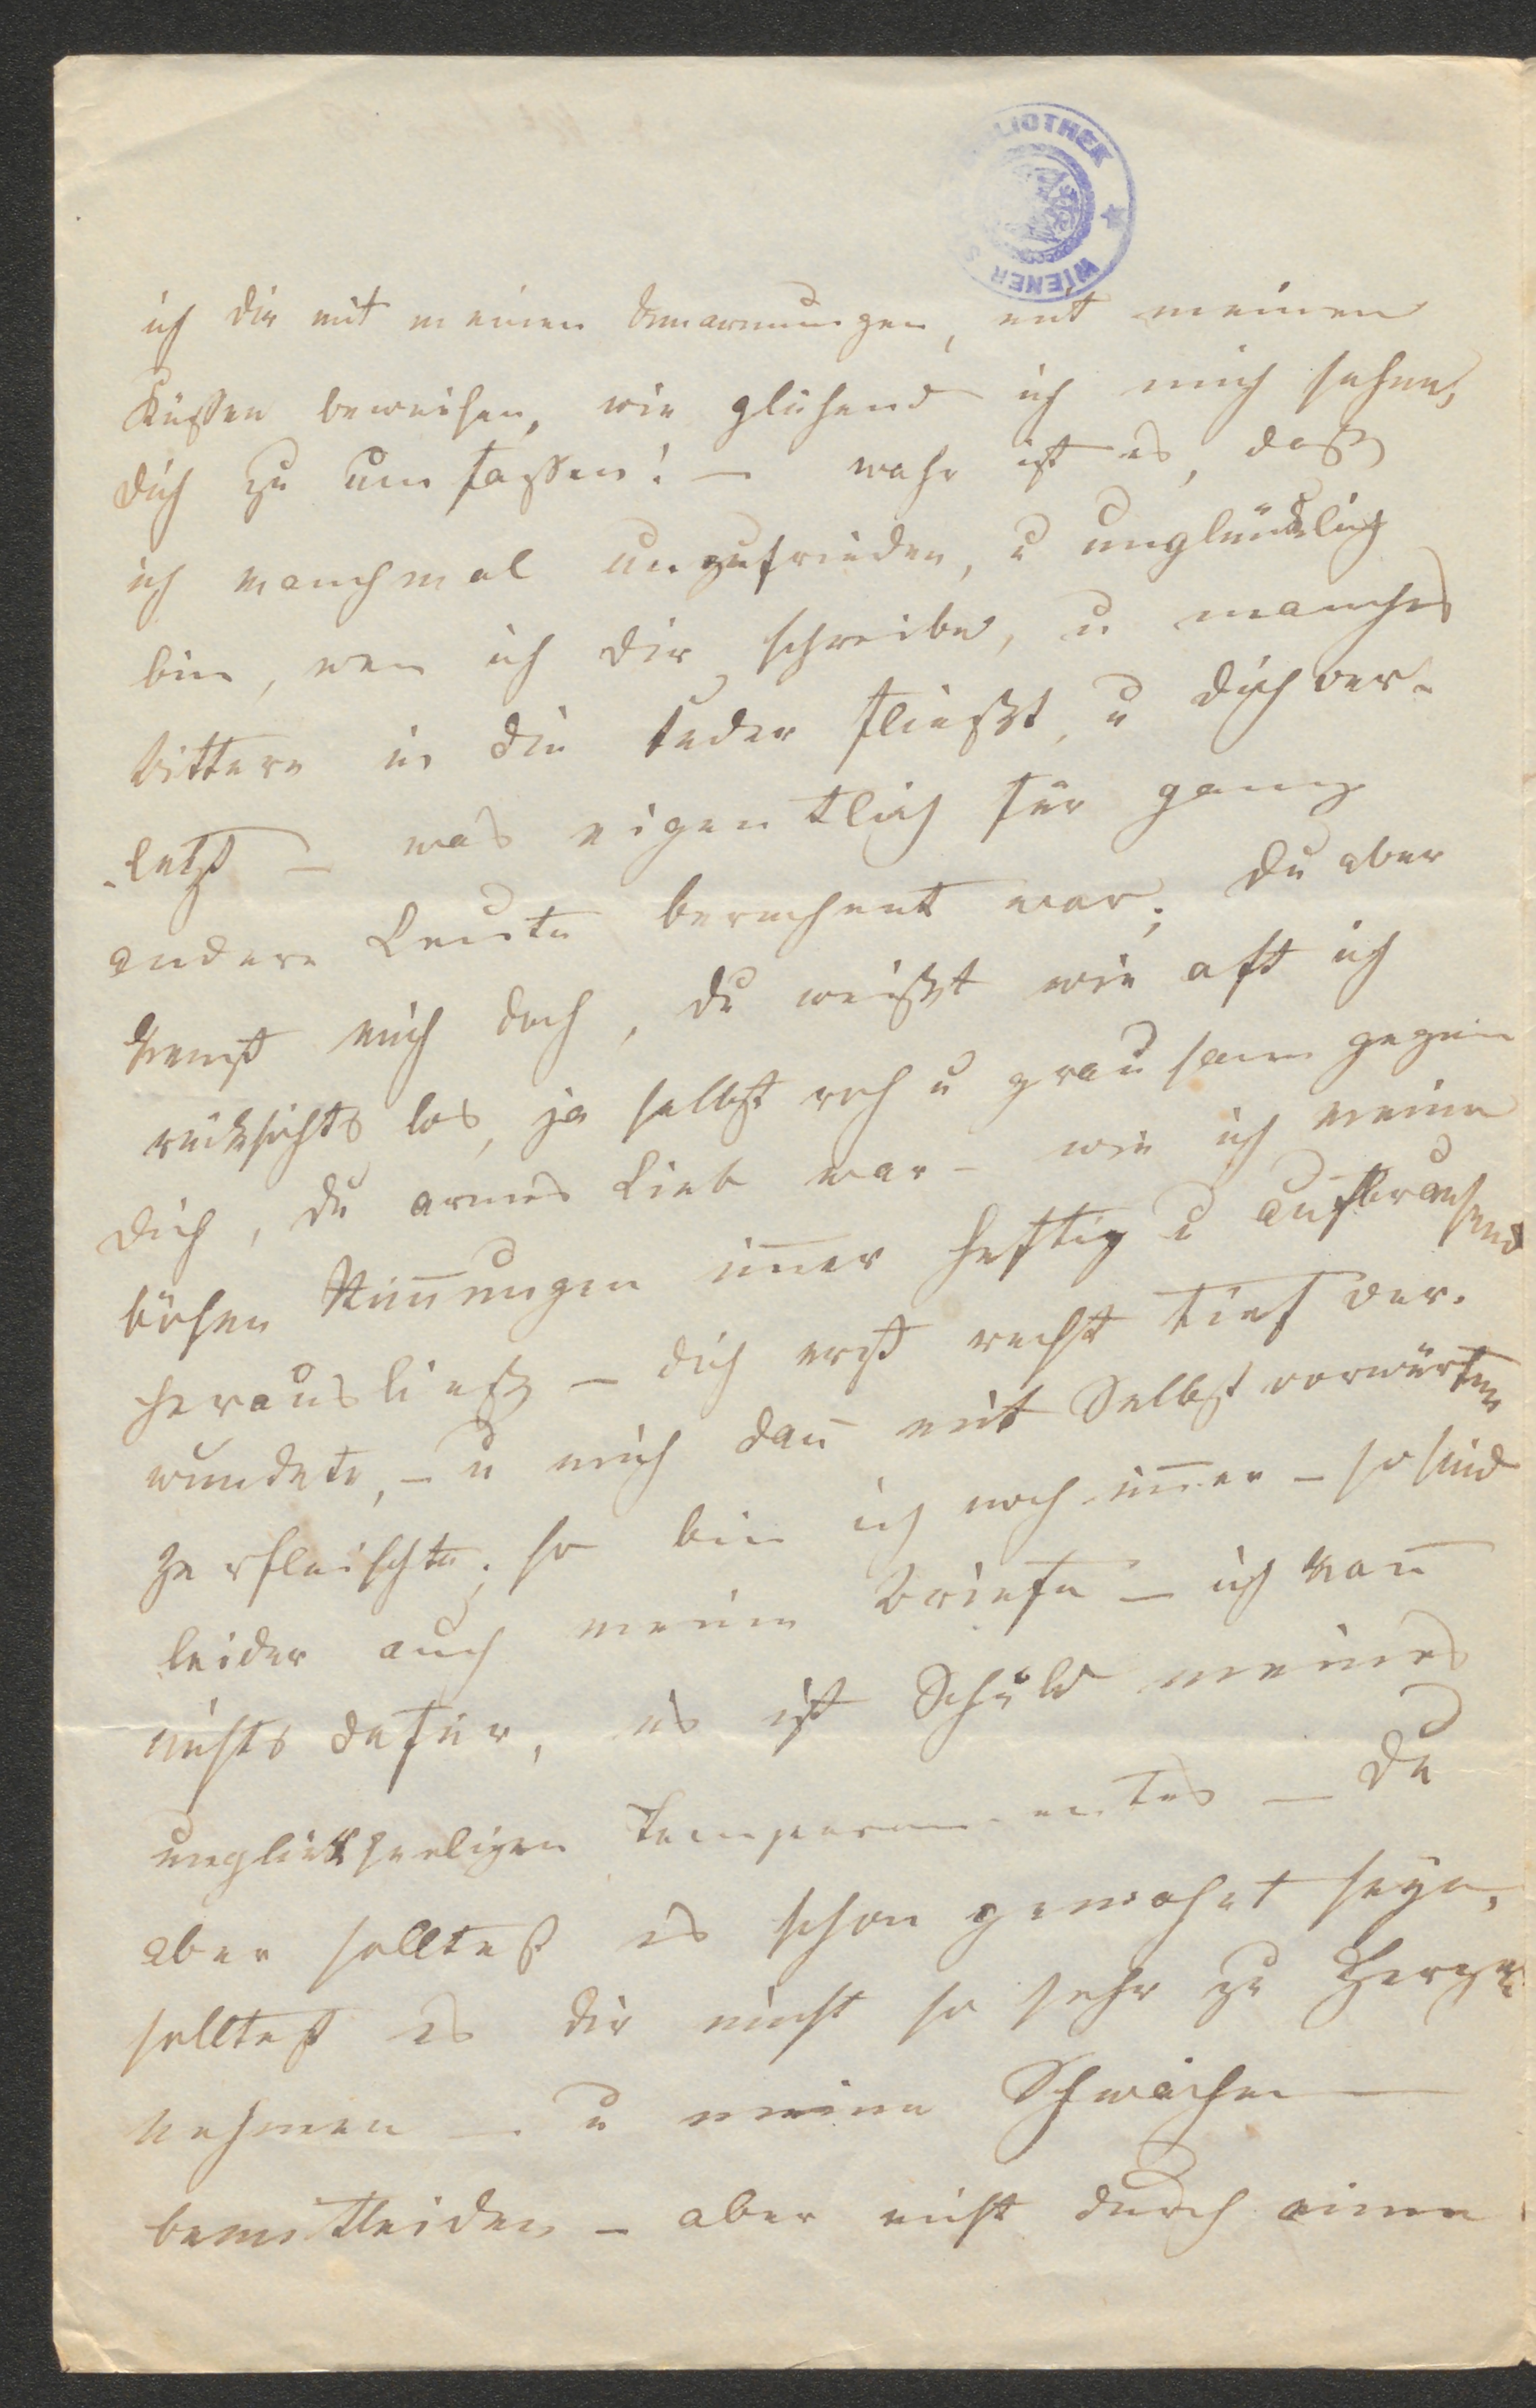 BIBLIOTHEK
WIENER
ich dir mit meinen Umarmungen, mit meinen
Küssen beweisen, wie glühend ich mich sehne,
dich zu umfassen! – wahr ist es, daß
ich manchmal unzufrieden, u unglücklich
bin, wen ich dir schreibe, u manches
bittere in die Feder fließt, u dich ver-
-letzt – was eigentlich für ganz
andere Leute berechnet war; du aber
kennst mich doch, du weißt wie oft ich
rücksichts los, ja selbst roh u grausam gegen
dich, du armes Lieb war – wie ich meine
bösen Stim̅ungen im̅er heftig u aufbrausend
herausließ – dich erst recht tief ver-
wundete, – u mich dan̅ mit Selbstvorwürfen
zerfleischte; so bin ich noch im̅er – so sind
leider auch meine Briefe – ich kan̅
nichts dafür, es ist Schuld meines
unglückseeligen Temperamentes – du
aber solltest es schon gewohnt seyn,
solltest es dir nicht so sehr zu Herzen
nehmen – u meine Schwächen –
bemitleiden – aber nicht durch einen